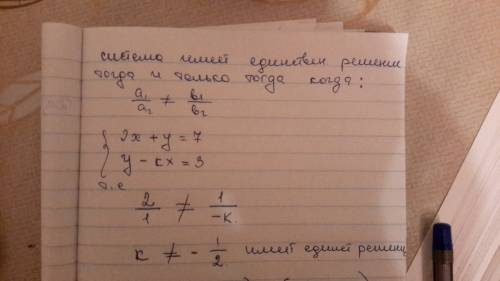 система имеет единствен решение
тогда и только тогда когда:
a₁/a₂ ≠ b₁/b₂
{ 2x + y = 7
y - kx = 3
т.е
2/1 ≠ 1/-k
k ≠ - 1/2 имеет единст решение